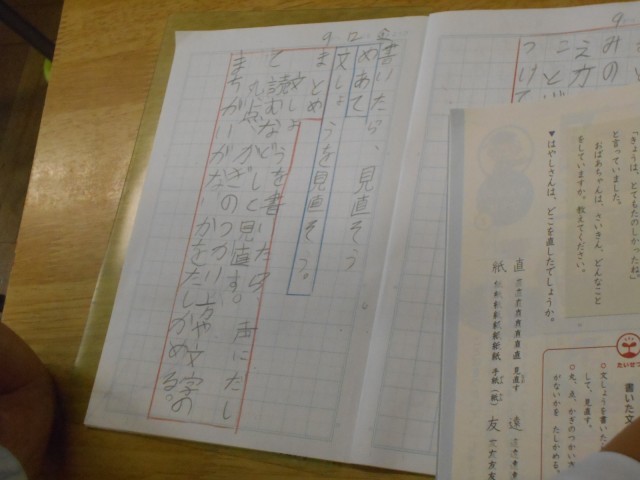 9
みの
え方
こと
つけて
書いたら、見直そう
めあて
文しょうを見直そう。
9
まとめ
文しょうを書いたら、声にだし
て読むなどして見直す。
丸、点、かぎのつかい方や文字の
まちがいがないかをたしかめる。
「きょうは、とてもたのしかったね」
と言っていました。
おばあちゃんは、さいきん、どんなこと
をしていますか。教えてください。
▼はやしさんは、どこを直したでしょうか。
直
見直す
紙
手紙(紙)
遠
友
たいせつ
書いた文
○文しょうを書いた
して、見直す。
○丸、点、かぎのつかい方
がないかを たしかめる。